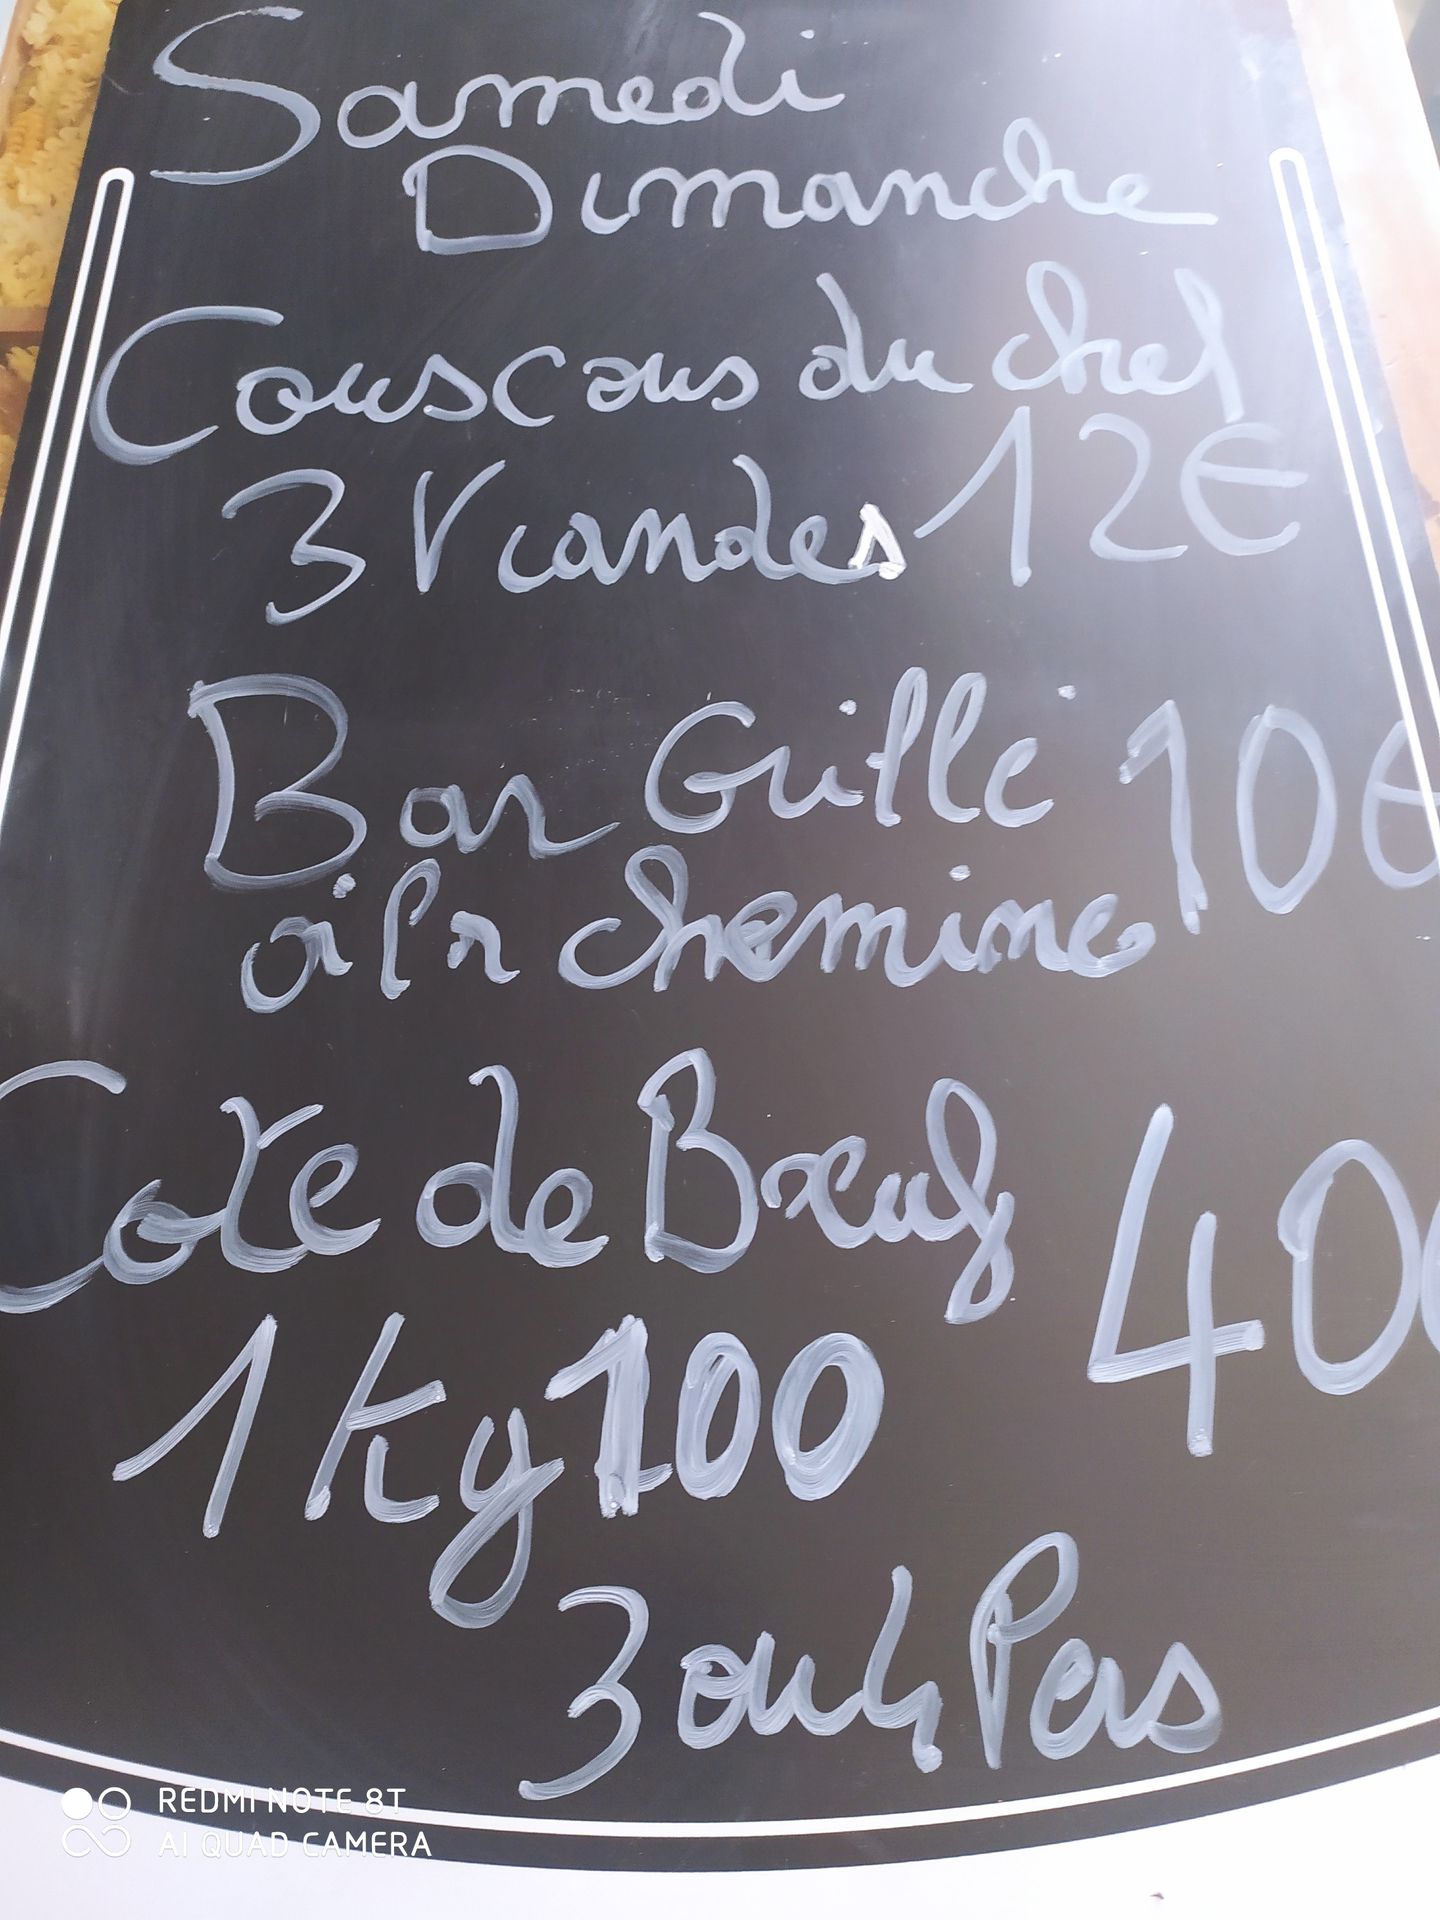 Samedi
Dimanche
Couscous du chef
3 Viandes 12€
Bar Grille 10€
a la chemine
Cote de Bœuf 40€
1kg100
3 ou 4 Pers
REDMI NOTE 8T
AI QUAD CAMERA